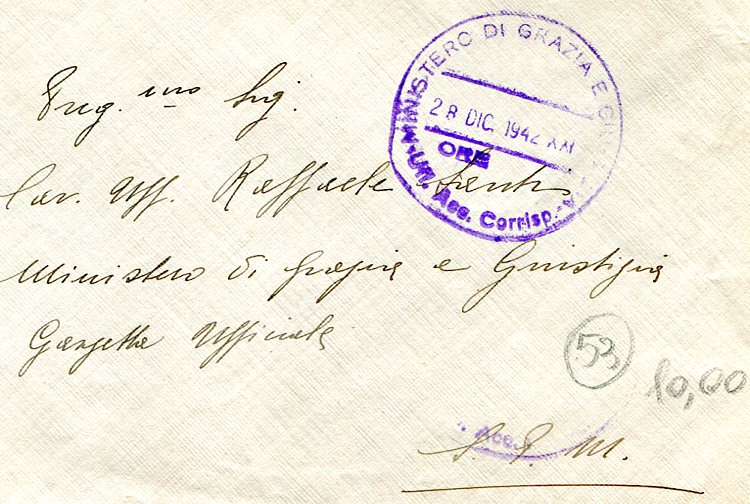 MINISTERO DI GRAZIA E
28 DIC. 1942 XXI
ORE
Uff. Acc. Corrisp.
Preg.mo Sig.
Cav. Uff. Raffaele
Ministero di Grazia e Giustizia
Gazzetta Ufficiale
53
10,00
Acc.
S. P. M.